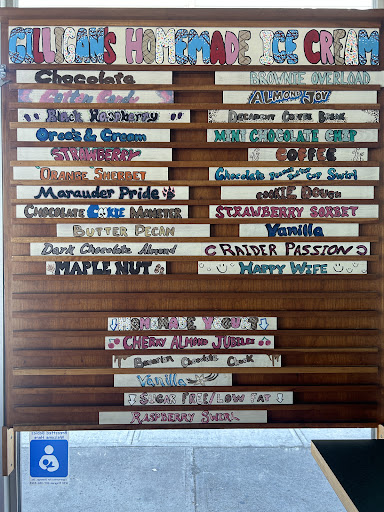 GILLIGAN'S HOMEMADE ICE CREAM
Chocolate
BROWNIE OVERLOAD
Cotton Candy
ALMOND JOY
Black Raspberry
Decadent Coffee Break
Oreo's & Cream
MINT CHOCOLATE CHIP
STRAWBERRY
COFFEE
ORANGE SHERBET
Chocolate Peanut Butter Cup Swirl
Marauder Pride
COOKIE DOUGH
CHOCOLATE COOKIE MONSTER
STRAWBERRY SORBET
BUTTER PECAN
Vanilla
Dark Chocolate Almond
RAIDER PASSION
MAPLE NUT
HAPPY WIFE
HOMEMADE YOGURT
CHERRY ALMOND JUBILEE
Bavarian Chocolate Chunk
Vanilla
SUGAR FREE/LOW FAT
RASPBERRY SWIRL
Breastfeeding Babies
Welcome Here